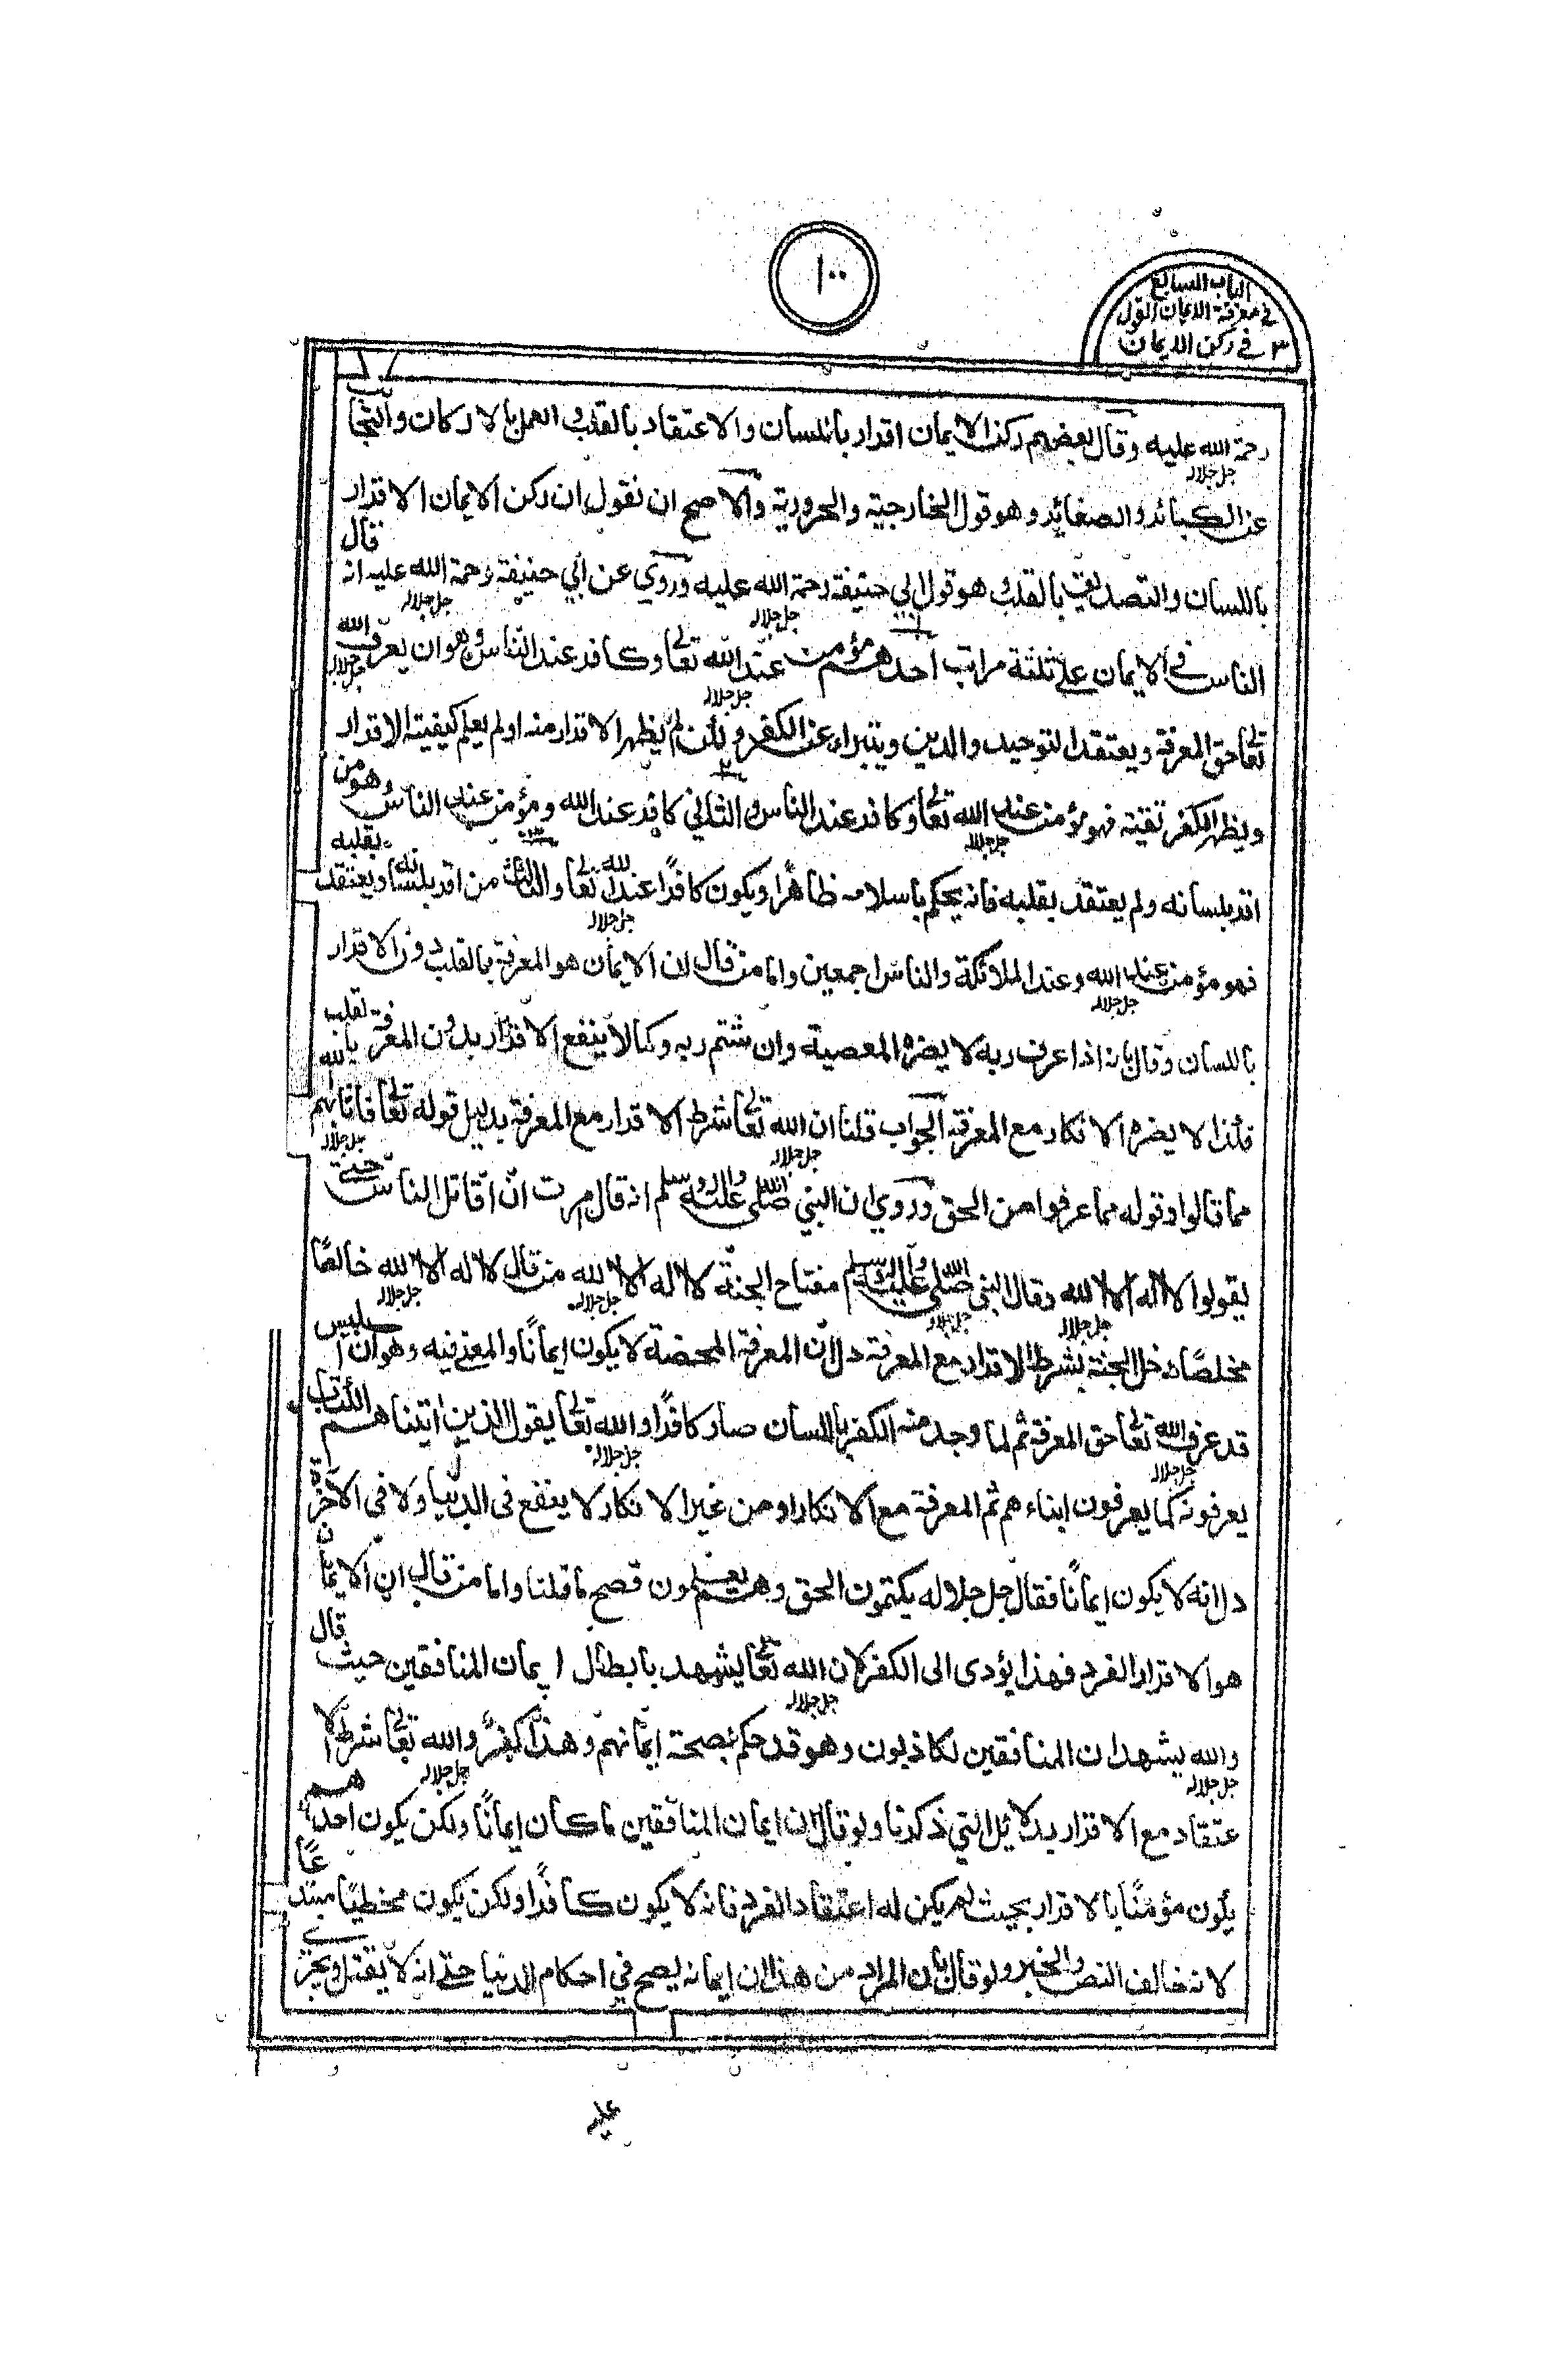 ١٠٠
الباب السابع
في معرفة الايمان القول
٣ في ركن الايمان
رحمة الله عليه وقال بعضهم ركن الايمان اقرار باللسان والاعتقاد بالقلب و العمل بالاركان والتجانب
جل جلاله
عن الكبائر والصغائر وهو قول الخارجية والحرورية والاصح ان نقول ان ركن الايمان الاقرار
باللسان والتصديق بالقلب و هو قول ابي حنيفة رحمة الله عليه وروي عن أبي حنيفة رحمة الله عليه انه قال
جل جلاله جل جلاله
الناس في الايمان علي ثلثة مراتب احدهم مؤمن عند الله تعالى وكافر عند الناس وهو ان يعرف الله
جل جلاله جل جلاله
تعالى حق المعرفة ويعتقد التوحيد والدين ويتبراء عن الكفر ولكن لم يظهر الاقرار منه او لم يعلم كيفيته الاقرار
ويظهر الكفر تقية فهو مؤمن عند الله تعالى وكافر عند الناس و الثاني كافر عند الله ومؤمن عند الناس وهو من
جل جلاله
اقر بلسانه ولم يعتقد بقلبه فانه يحكم باسلامه ظاهرًا ويكون كافرًا عند الله تعالى والثالث من اقر بلسانه ويعتقد بقلبه
جل جلاله
فهو مؤمن عند الله وعند الملائكة والناس اجمعين واما من قال ان الايمان هو المعرفة بالقلب دون الاقرار
جل جلاله
باللسان وقال بانه اذا عرف ربه لا يضره المعصية وان شتم ربه وكما لا ينفع الاقرار بدون المعرفة بالقلب
فكذا لا يضره الانكار مع المعرفة الجواب قلنا ان الله تعالى شرط الاقرار مع المعرفة بدليل قوله تعالى فاثابهم الله
جل جلاله جل جلاله
مما قالوا وقوله مما عرفوا من الحق وروي ان النبي صلى الله عليه واله وسلم انه قال امرت انّ اقاتل الناس حتى
يقولوا لا اله الا الله وقال النبي صلى الله عليه واله وسلم مفتاح الجنة لا اله الا الله من قال لا اله الا الله خالصًا
جل جلاله جل جلاله جل جلاله جل جلاله
مخلصًا دخل الجنة بشرط الاقرار مع المعرفة دل ان المعرفة المحضة لا يكون ايمانًا والمعني فيه وهو ان ابليس
قد عرف الله تعالى حق المعرفة ثم لما وجد منه الكفر باللسان صار كافرًا والله تعالى يقول الذين اتيناهم الكتاب
جل جلاله جل جلاله
يعرفونه كما يعرفون ابناءهم ثم المعرفة مع الانكار او من غير الانكار لا ينفع فى الدنيا ولا فى الآخرة
دل انه لا يكون ايمانًا فقال جل جلاله يكتمون الحق وهم يعلمون فصح ما قلنا واما من قال ان الايمان
هو الاقرار الفرد فهذا يؤدى الى الكفر لان الله تعالى يشهد بابطال ايمان المنافقين حيث قال
جل جلاله
والله يشهد ان المنافقين لكاذبون وهو قد حكم بصحة ايمانهم وهذا كفرٌ والله تعالى شرط الا
جل جلاله جل جلاله
عتقاد مع الاقرار بدلائل التي ذكرنا ولو قال ان ايمان المنافقين ما كان ايمانًا ولكن يكون احدهم
يكون مؤمنًا بالاقرار بحيث لم يكن له اعتقاد الفرد فانه لا يكون كافرًا ولكن يكون مخطيًا مبتدعًا
لانه خالف النص والخبر ولو قال بان المراد من هذا ان ايمانه يصح في احكام الدنيا حتى انه لا يقتل ويجزى
عليه